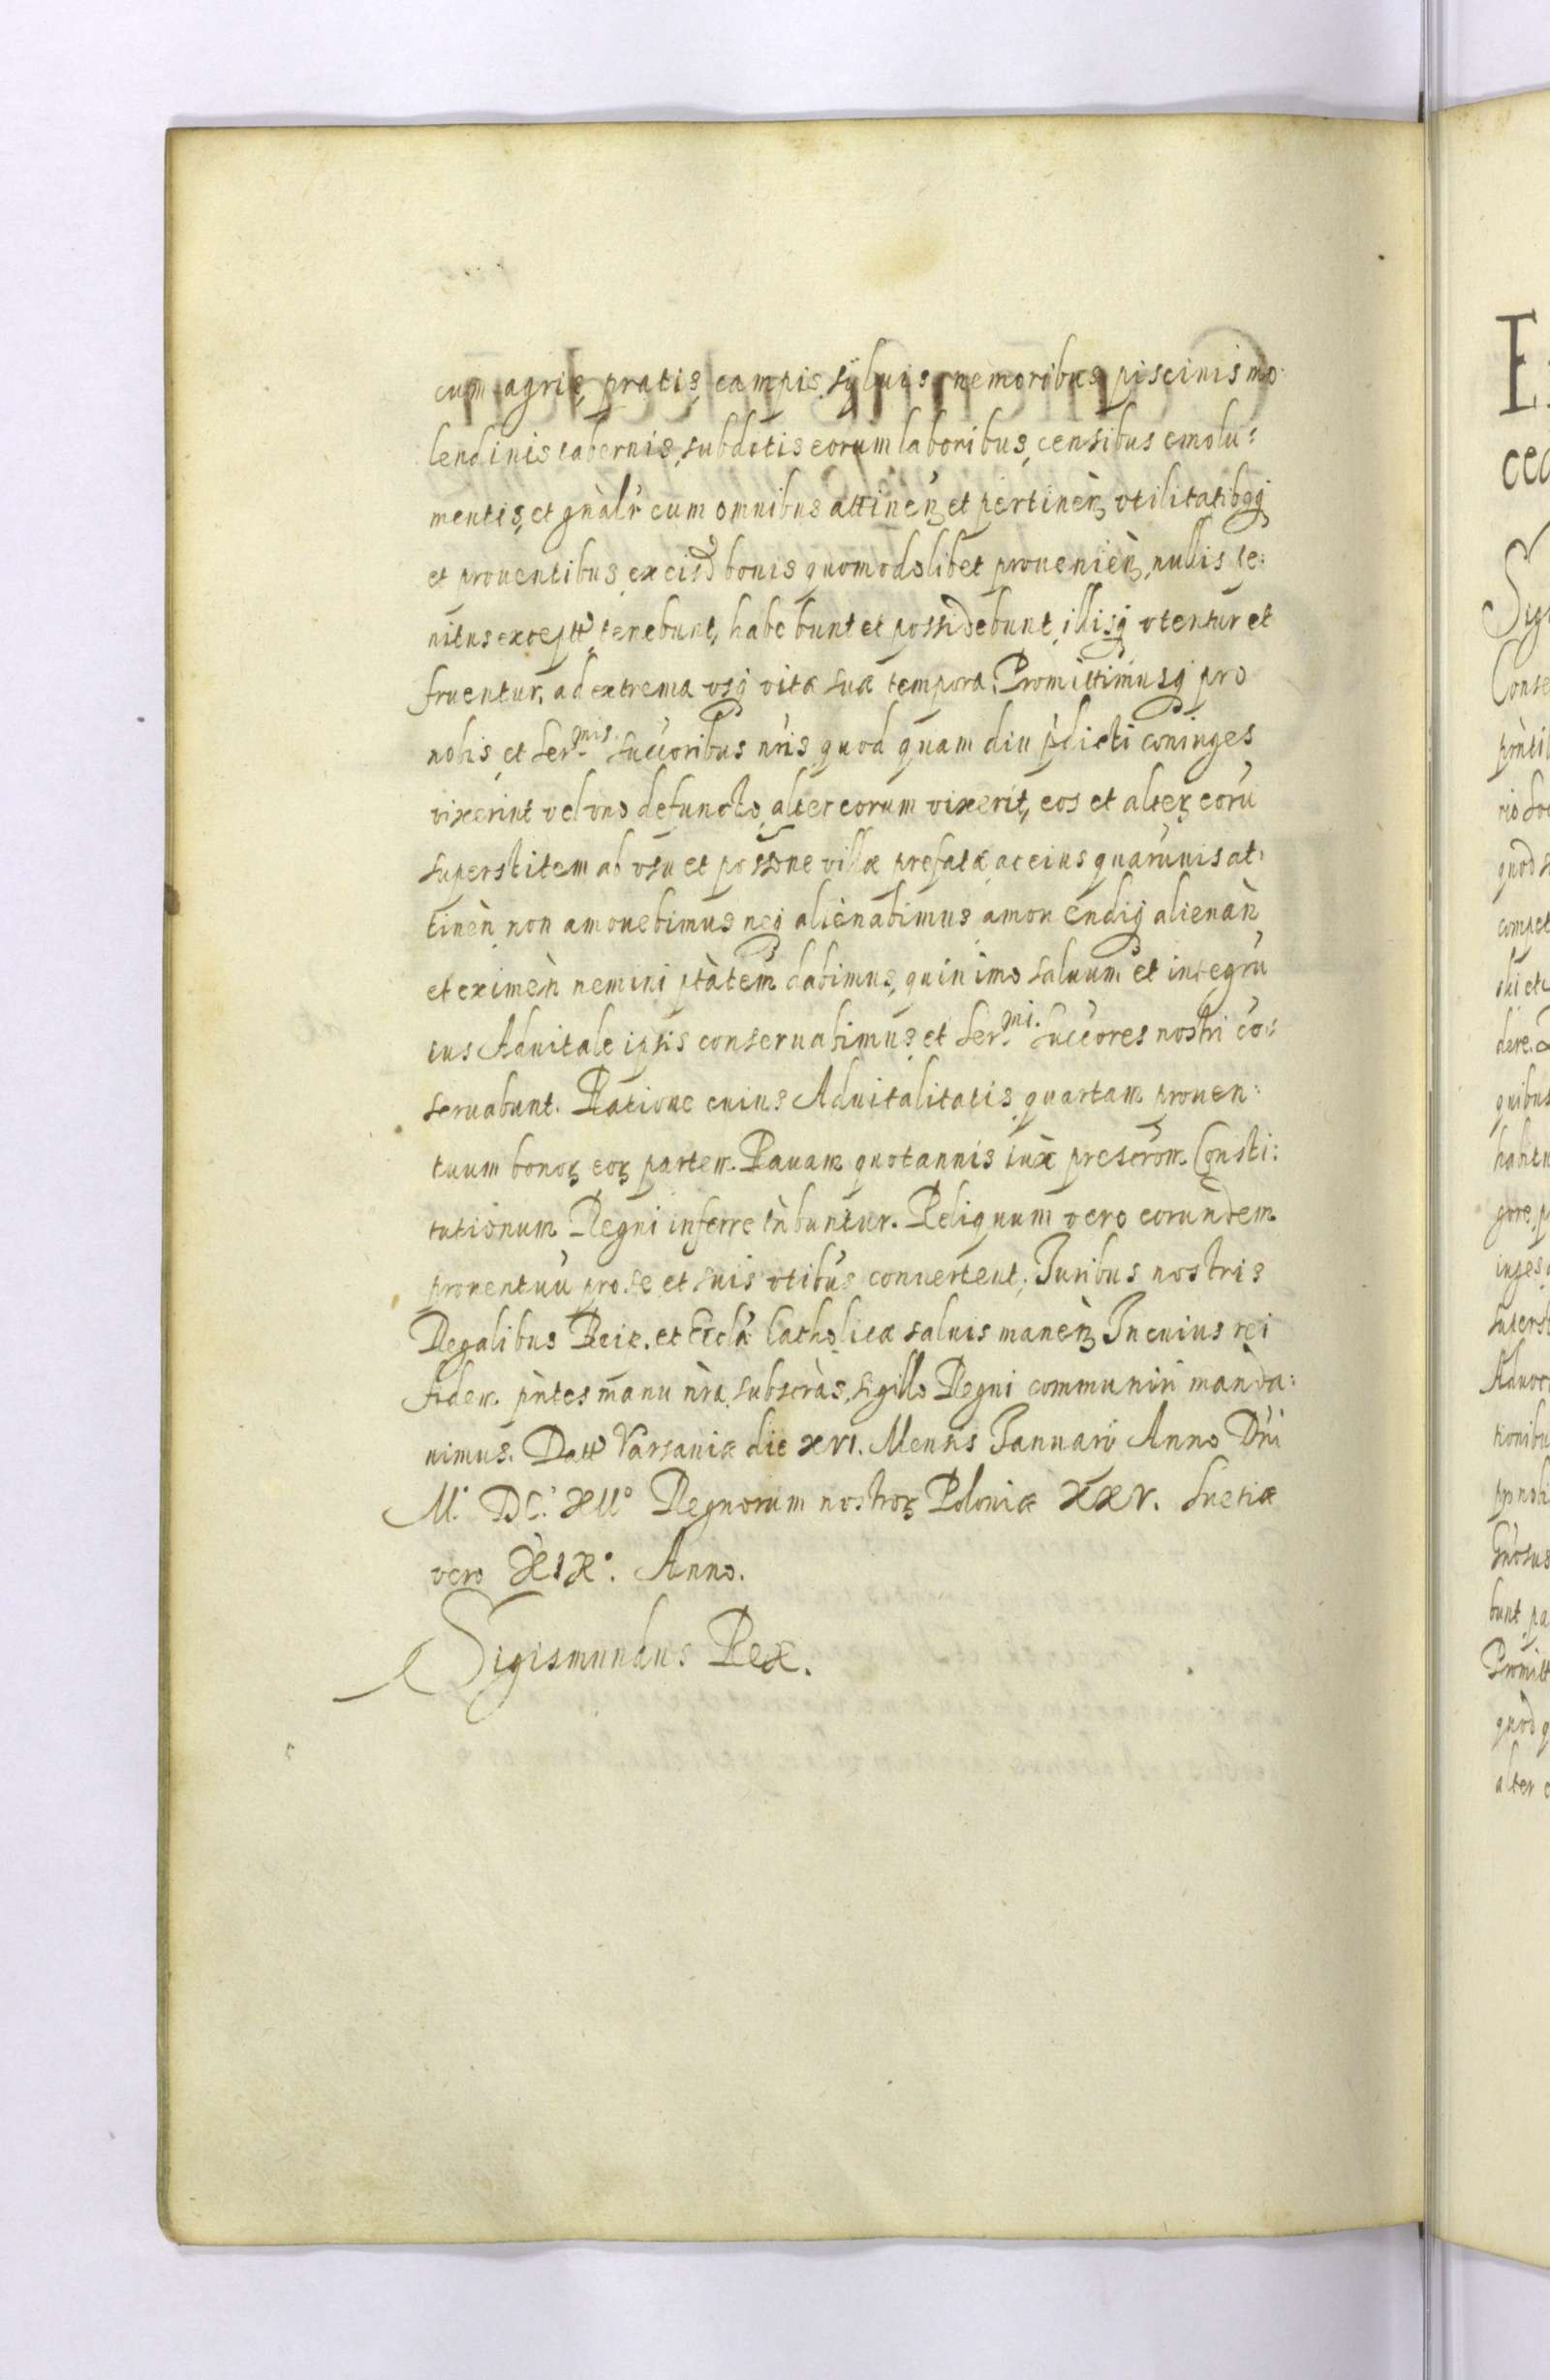 cum agris, pratis, campis, syluis, nemoribus, piscinis mo:
lendinis tabernis, subditis eorum laboribus, censibus emolu:
mentis, et gnàlr cum omnibus attinen et pertinen vtilitatibqq
et prouentibus, ex eisd bonis quomodolibet prouenien, nullis pe:
nitus exceptt, tenebunt, habebunt et possidebunt, illisq vtentur et
fruentur, ad extrema vsq vitæ suæ tempora. Promittimusq pro
nobis, et Ser.mis Succoribus nris, quod quam diu pdicti coniuges
vixerint vel vno defuncto, alter eorum vixerit, eos et alter eorù
superstitem ab vsu et possone villæ prefatæ, ac eius quarumuis at:
tinen non amouebimus neq alienabimus, amouendiq alienan
et eximen nemini ptàtem dabimus, quinimo saluum et integrù
ius Aduitale ipsis conseruabimus, et Ser.mi Succores nostri co:
seruabunt. Ratione cuius Aduitalitatis, quartam prouen:
tuum bonoꝝ eoꝝ partem. Rauam quotannis iux prescrom Consti:
tutionum Regni inferre tnbuntur. Reliquum vero eorundem
prouentuù pro se et suis vtibus conuertent. Iuribus nostris
Regalibus Reip. et Eccle Catholicæ saluis manen. In cuius rei
fidem pntes manu nra subscras, sigillo Regni communiri manda:
uimus. Datt Varsauiæ die XVI. Mensis Ianuarii Anno Dni
M. DC. XII° Regnorum nostroꝝ Poloniæ XXV. Suetiæ
vero XIX°. Anno.
Sigismundus Rex.